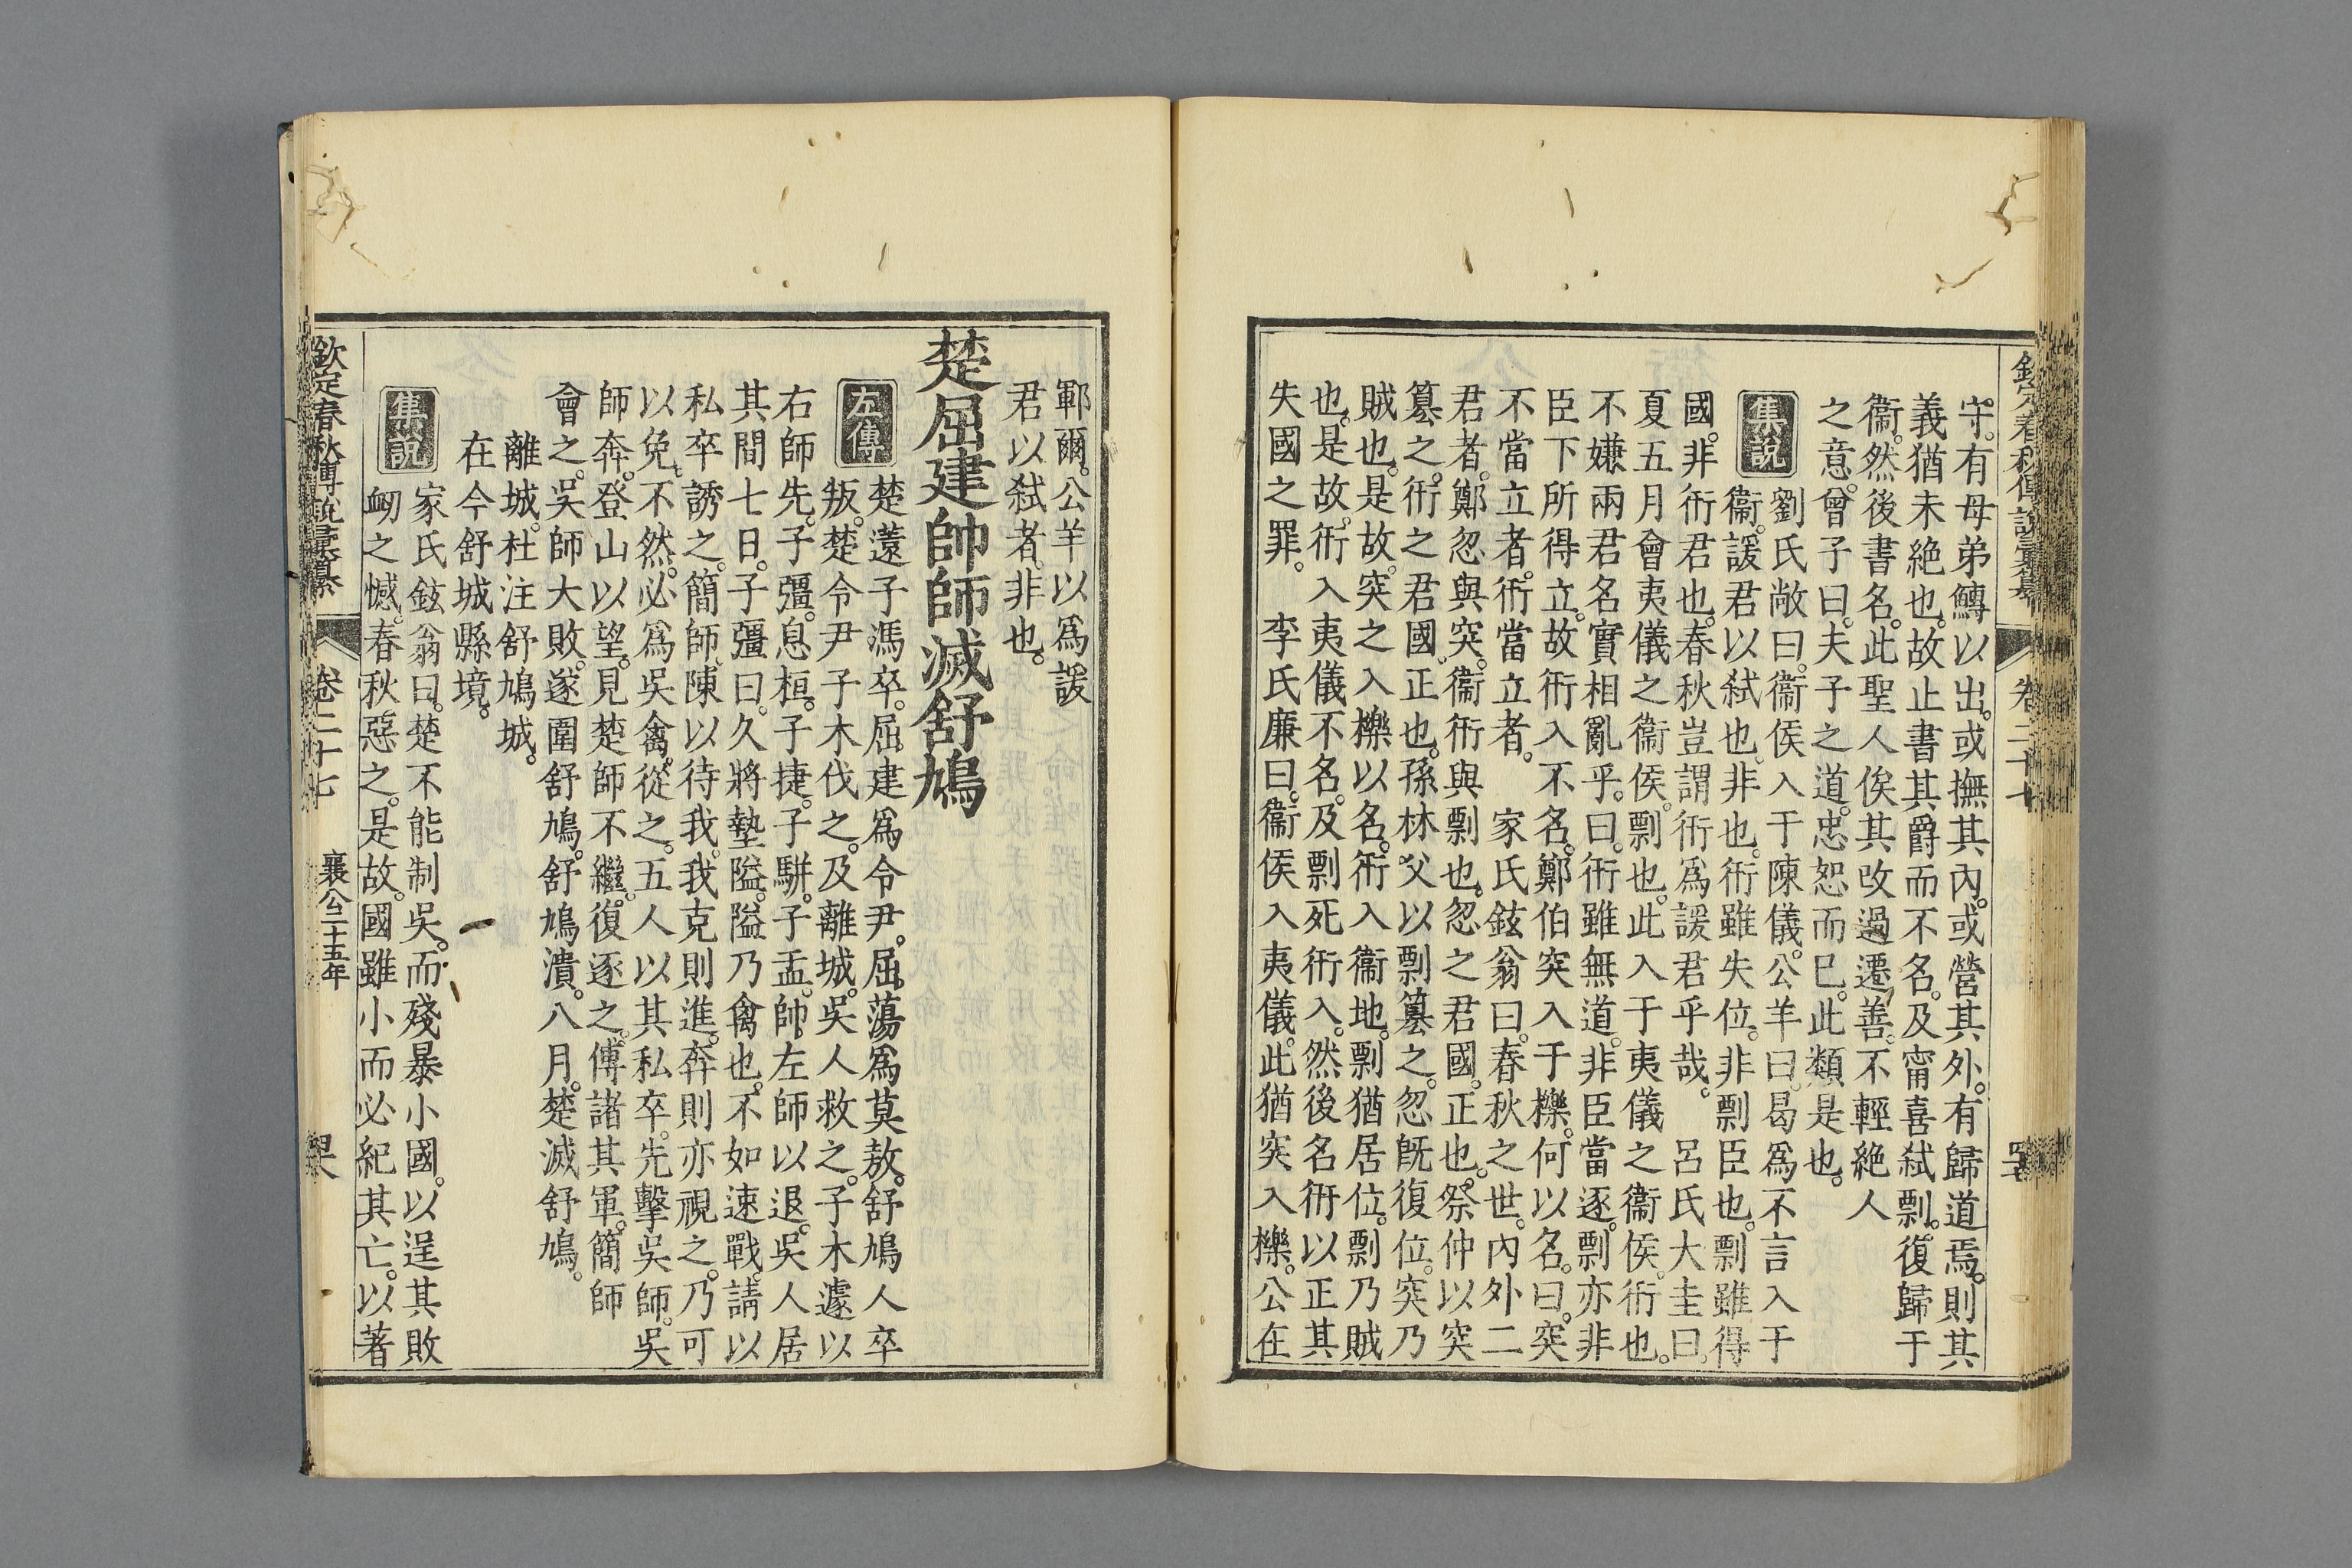 守。有母弟鱄以出。或撫其內。或營其外。有歸道焉。則其
義猶未絶也。故止書其爵而不名。及甯喜弑剽。復歸于
衞。然後書名。此聖人俟其改過遷善。不輕絶人
之意。曾子曰。夫子之道。忠恕而已。此類是也。
集說
劉氏敞曰。衞侯入于陳儀。公羊曰。曷爲不言入于
衞。諼君以弑也。非也。衎雖失位。非剽臣也。剽雖得
國。非衎君也。春秋豈謂衎爲諼君乎哉。 呂氏大圭曰。
夏五月會夷儀之衞侯。剽也。此入于夷儀之衞侯。衎也。
不嫌兩君名實相亂乎。曰。衎雖無道。非臣當逐。剽亦非
臣下所得立。故衎入不名。鄭伯突入于櫟。何以名。曰。突
不當立者。衎當立者。 家氏鉉翁曰。春秋之世。內外二
君者。鄭忽與突。衞衎與剽也。忽之君國。正也。祭仲以突
簒之。衎之君國。正也。孫林父以剽簒之。忽旣復位。突乃
賊也。是故。突之入櫟以名。衎入衞地。剽猶居位。剽乃賊
也。是故。衎入夷儀不名。及剽死衎入。然後名衎以正其
失國之罪。 李氏廉曰。衞侯入夷儀。此猶突入櫟。公在
鄆爾。公羊以爲諼
君以弑者。非也。
楚屈建帥師滅舒鳩
左傳
楚薳子馮卒。屈建爲令尹。屈蕩爲莫敖。舒鳩人卒
叛。楚令尹子木伐之。及離城。吳人救之。子木遽以
右師先。子彊。息桓。子捷。子駢。子盂。帥左師以退。吳人居
其間七日。子彊曰。久將墊隘。隘乃禽也。不如速戰。請以
私卒誘之。簡師陳以待我。我克則進。奔則亦視之。乃可
以免。不然。必爲吳禽。從之。五人以其私卒。先擊吳師。吳
師奔。登山以望。見楚師不繼。復逐之。傅諸其軍。簡師
會之。吳師大敗。遂圍舒鳩。舒鳩潰。八月。楚滅舒鳩。
離城。杜注舒鳩城。
在今舒城縣境。
集說
家氏鉉翁曰。楚不能制吳。而殘暴小國。以逞其敗
衂之憾。春秋惡之。是故。國雖小而必紀其亡。以著
欽定春秋傳說彙纂 卷二十七 襄公二十五年